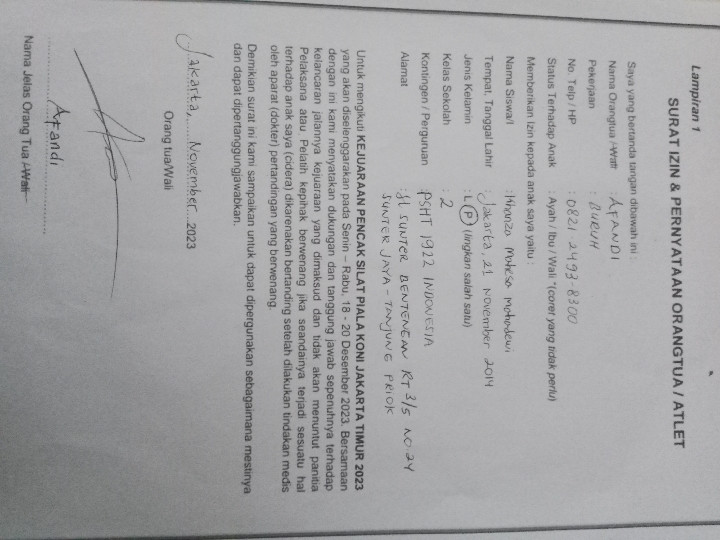 Lampiran 1
SURAT IZIN & PERNYATAAN ORANGTUA / ATLET
Saya yang bertanda tangan dibawah ini :
Nama Orangtua / Wali : AFANDI
Pekerjaan : BURUH
No. Telp / HP : 0821-2493-8300
Status Terhadap Anak : Ayah / Ibu / Wali *(coret yang tidak perlu)
Memberikan Izin kepada anak saya yaitu :
Nama Siswa/I :
Tempat, Tanggal Lahir : Jakarta, 21 November 2014
Jenis Kelamin : L / P (lingkari salah satu)
Kelas Sekolah : 2
Kontingen / Perguruan : PSHT 1922 INDONESIA
Alamat : JL SUNTER BENTENGAN RT 3/5 NO 24
SUNTER JAYA - TANJUNG PRIOK
Untuk mengikuti KEJUARAAN PENCAK SILAT PIALA KONI JAKARTA TIMUR 2023
yang akan diselenggarakan pada Senin – Rabu, 18 - 20 Desember 2023. Bersamaan
dengan ini kami menyatakan dukungan dan tanggung jawab sepenuhnya terhadap
kelancaran jalannya kejuaraan yang dimaksud dan tidak akan menuntut panitia
Pelaksana atau Pelatih kepihak berwenang jika seandainya terjadi sesuatu hal
terhadap anak saya (cidera) dikarenakan bertanding setelah dilakukan tindakan medis
oleh aparat (dokter) pertandingan yang berwenang.
Demikian surat ini kami sampaikan untuk dapat dipergunakan sebagaimana mestinya
dan dapat dipertanggungjawabkan.
Jakarta, November 2023
Orang tua/Wali
Afandi
Nama Jelas Orang Tua / Wali